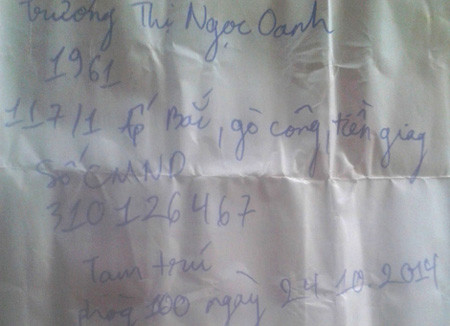 Trương Thị Ngọc Oanh
1961
117/1 Ấp Bắc, gò công, tiền giang
Số CMND
310126467
Tạm trú
phòng 100 ngày 24.10.2014